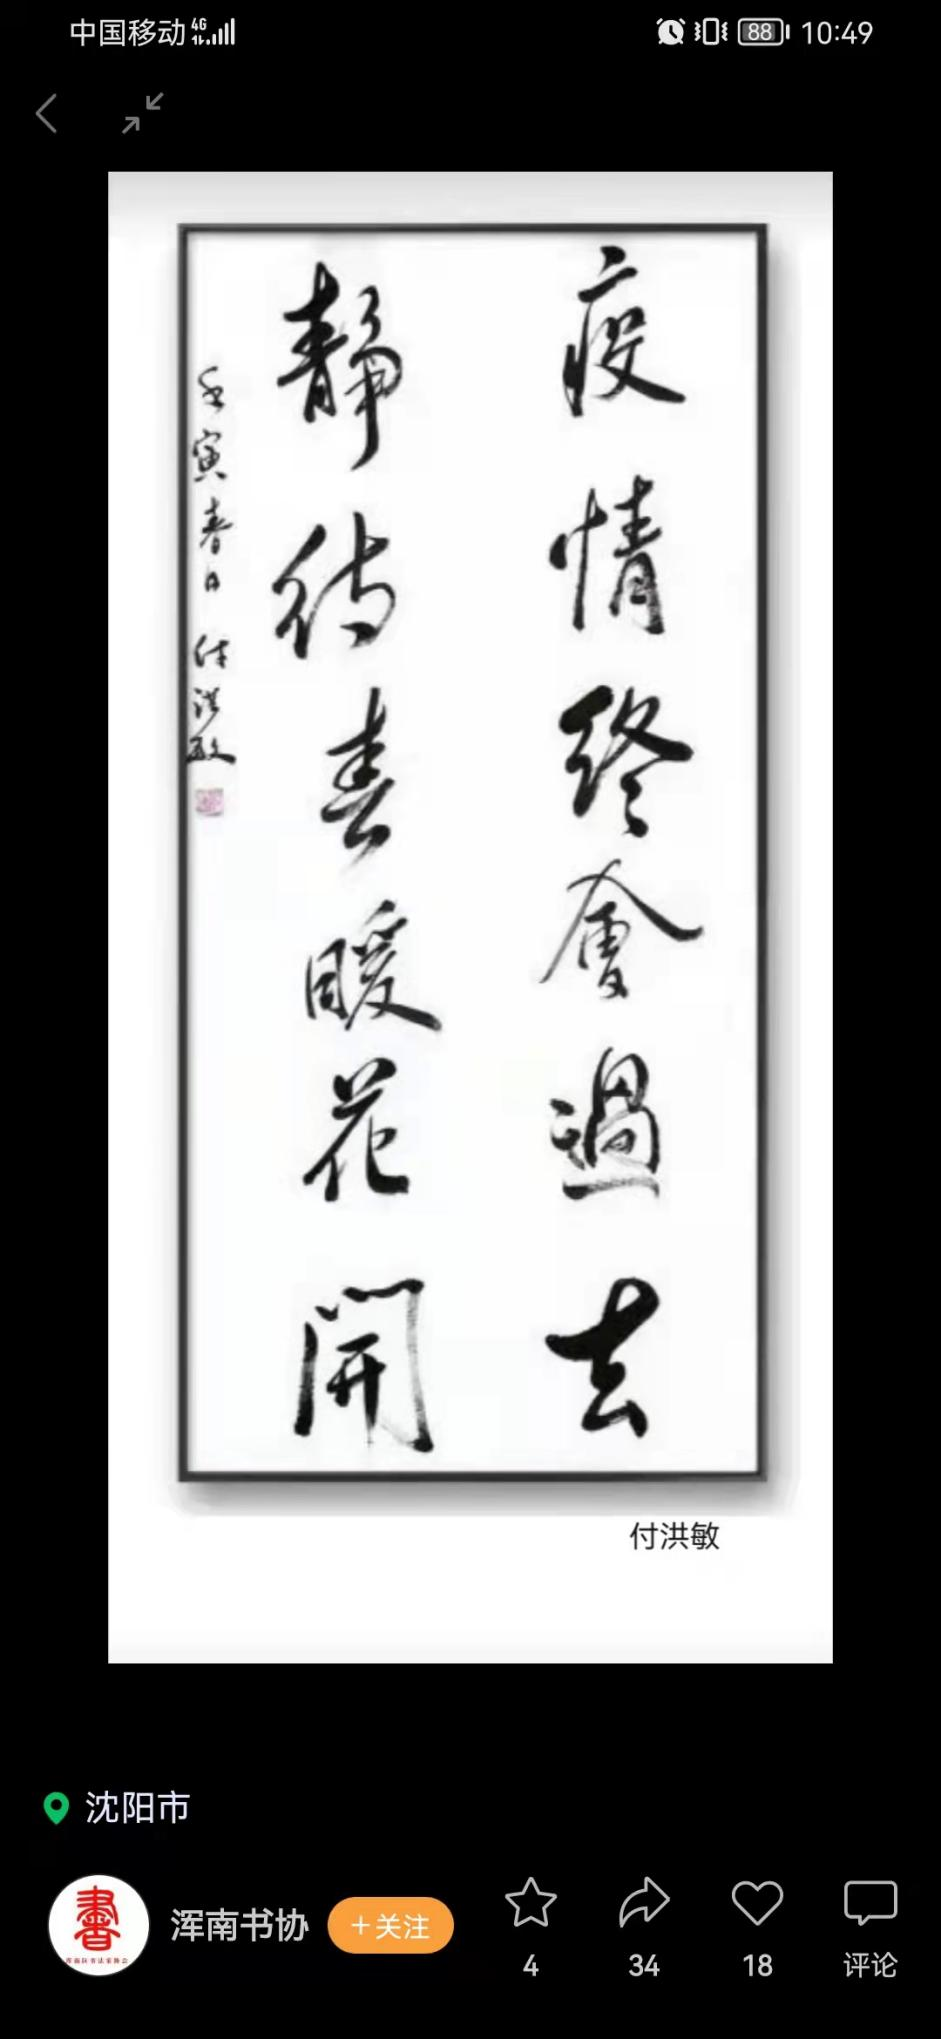 中国移动 4G 88 10:49
疫情终會過去
静待春暖花開
壬寅春日 付洪敏
付洪敏
沈阳市
書
浑南区书法家协会
浑南书协 +关注
4 34 18 评论